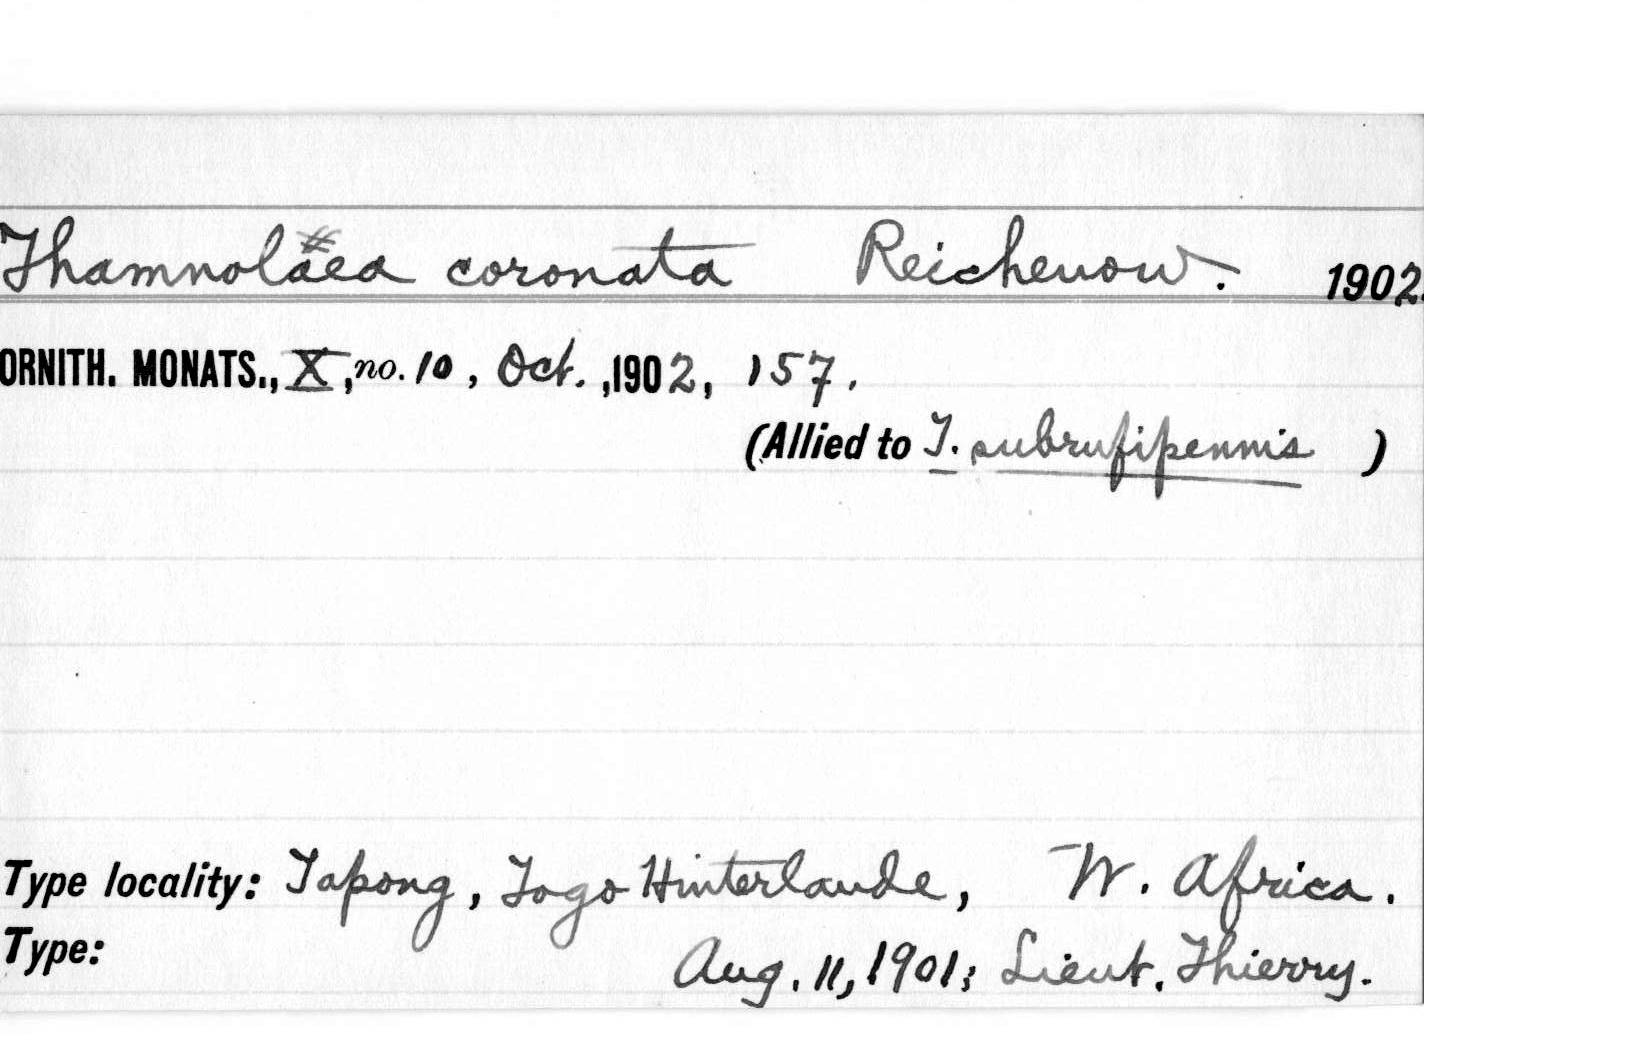 Thamnolaea coronata Reichenow. 1902.
ORNITH. MONATS., X, no. 10, Oct., 1902, 157.
(Allied to T. subrufipennis )
Type locality: Tapong, Togo Hinterlande, W. Africa.
Type: Aug. 11, 1901; Lieut. Thierry.